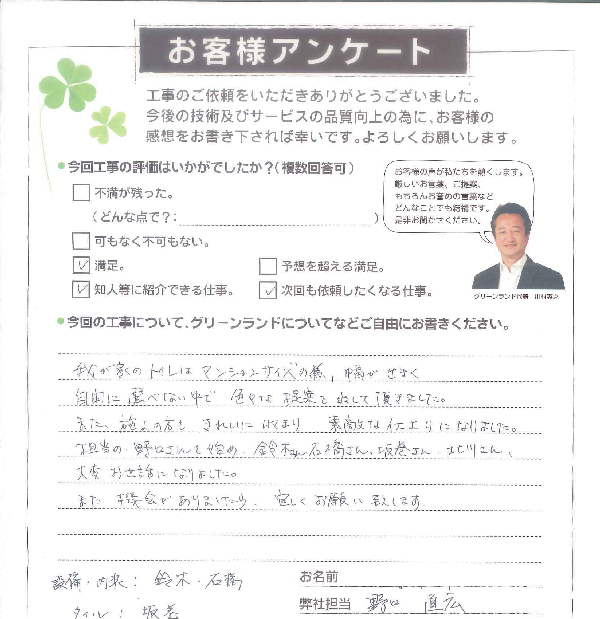 お客様アンケート
工事のご依頼をいただきありがとうございました。
今後の技術及びサービスの品質向上の為に、お客様の
感想をお書き下されば幸いです。よろしくお願いします。
●今回工事の評価はいかがでしたか?(複数回答可)
お客様の声が私たちを熱くします。
厳しいお言葉、ご提案、
もちろんお誉めの言葉など
どんなことでも結構です。
是非お聞かせください。
不満が残った。
(どんな点で?: )
可もなく不可もない。
満足。
予想を超える満足。
知人等に紹介できる仕事。
次回も依頼したくなる仕事。
グリーンランド代表
●今回の工事について、グリーンランドについてなどご自由にお書きください。
我が家のトイレはマンションサイズの様、幅がせまく
自由に選べない中で 色々な提案をして頂きました。
また、の方も きれいに 収まり 素敵な仕上りになりました。
担当の 野口さんを始め、鈴木さん石橋さん、坂巻さん、北川さん、
大変お世話になりました。
また 機会がありましたら、宜しくお願い致します
設備・内装: 鈴木・石橋
タイル: 坂巻
お名前
弊社担当 野口 直広